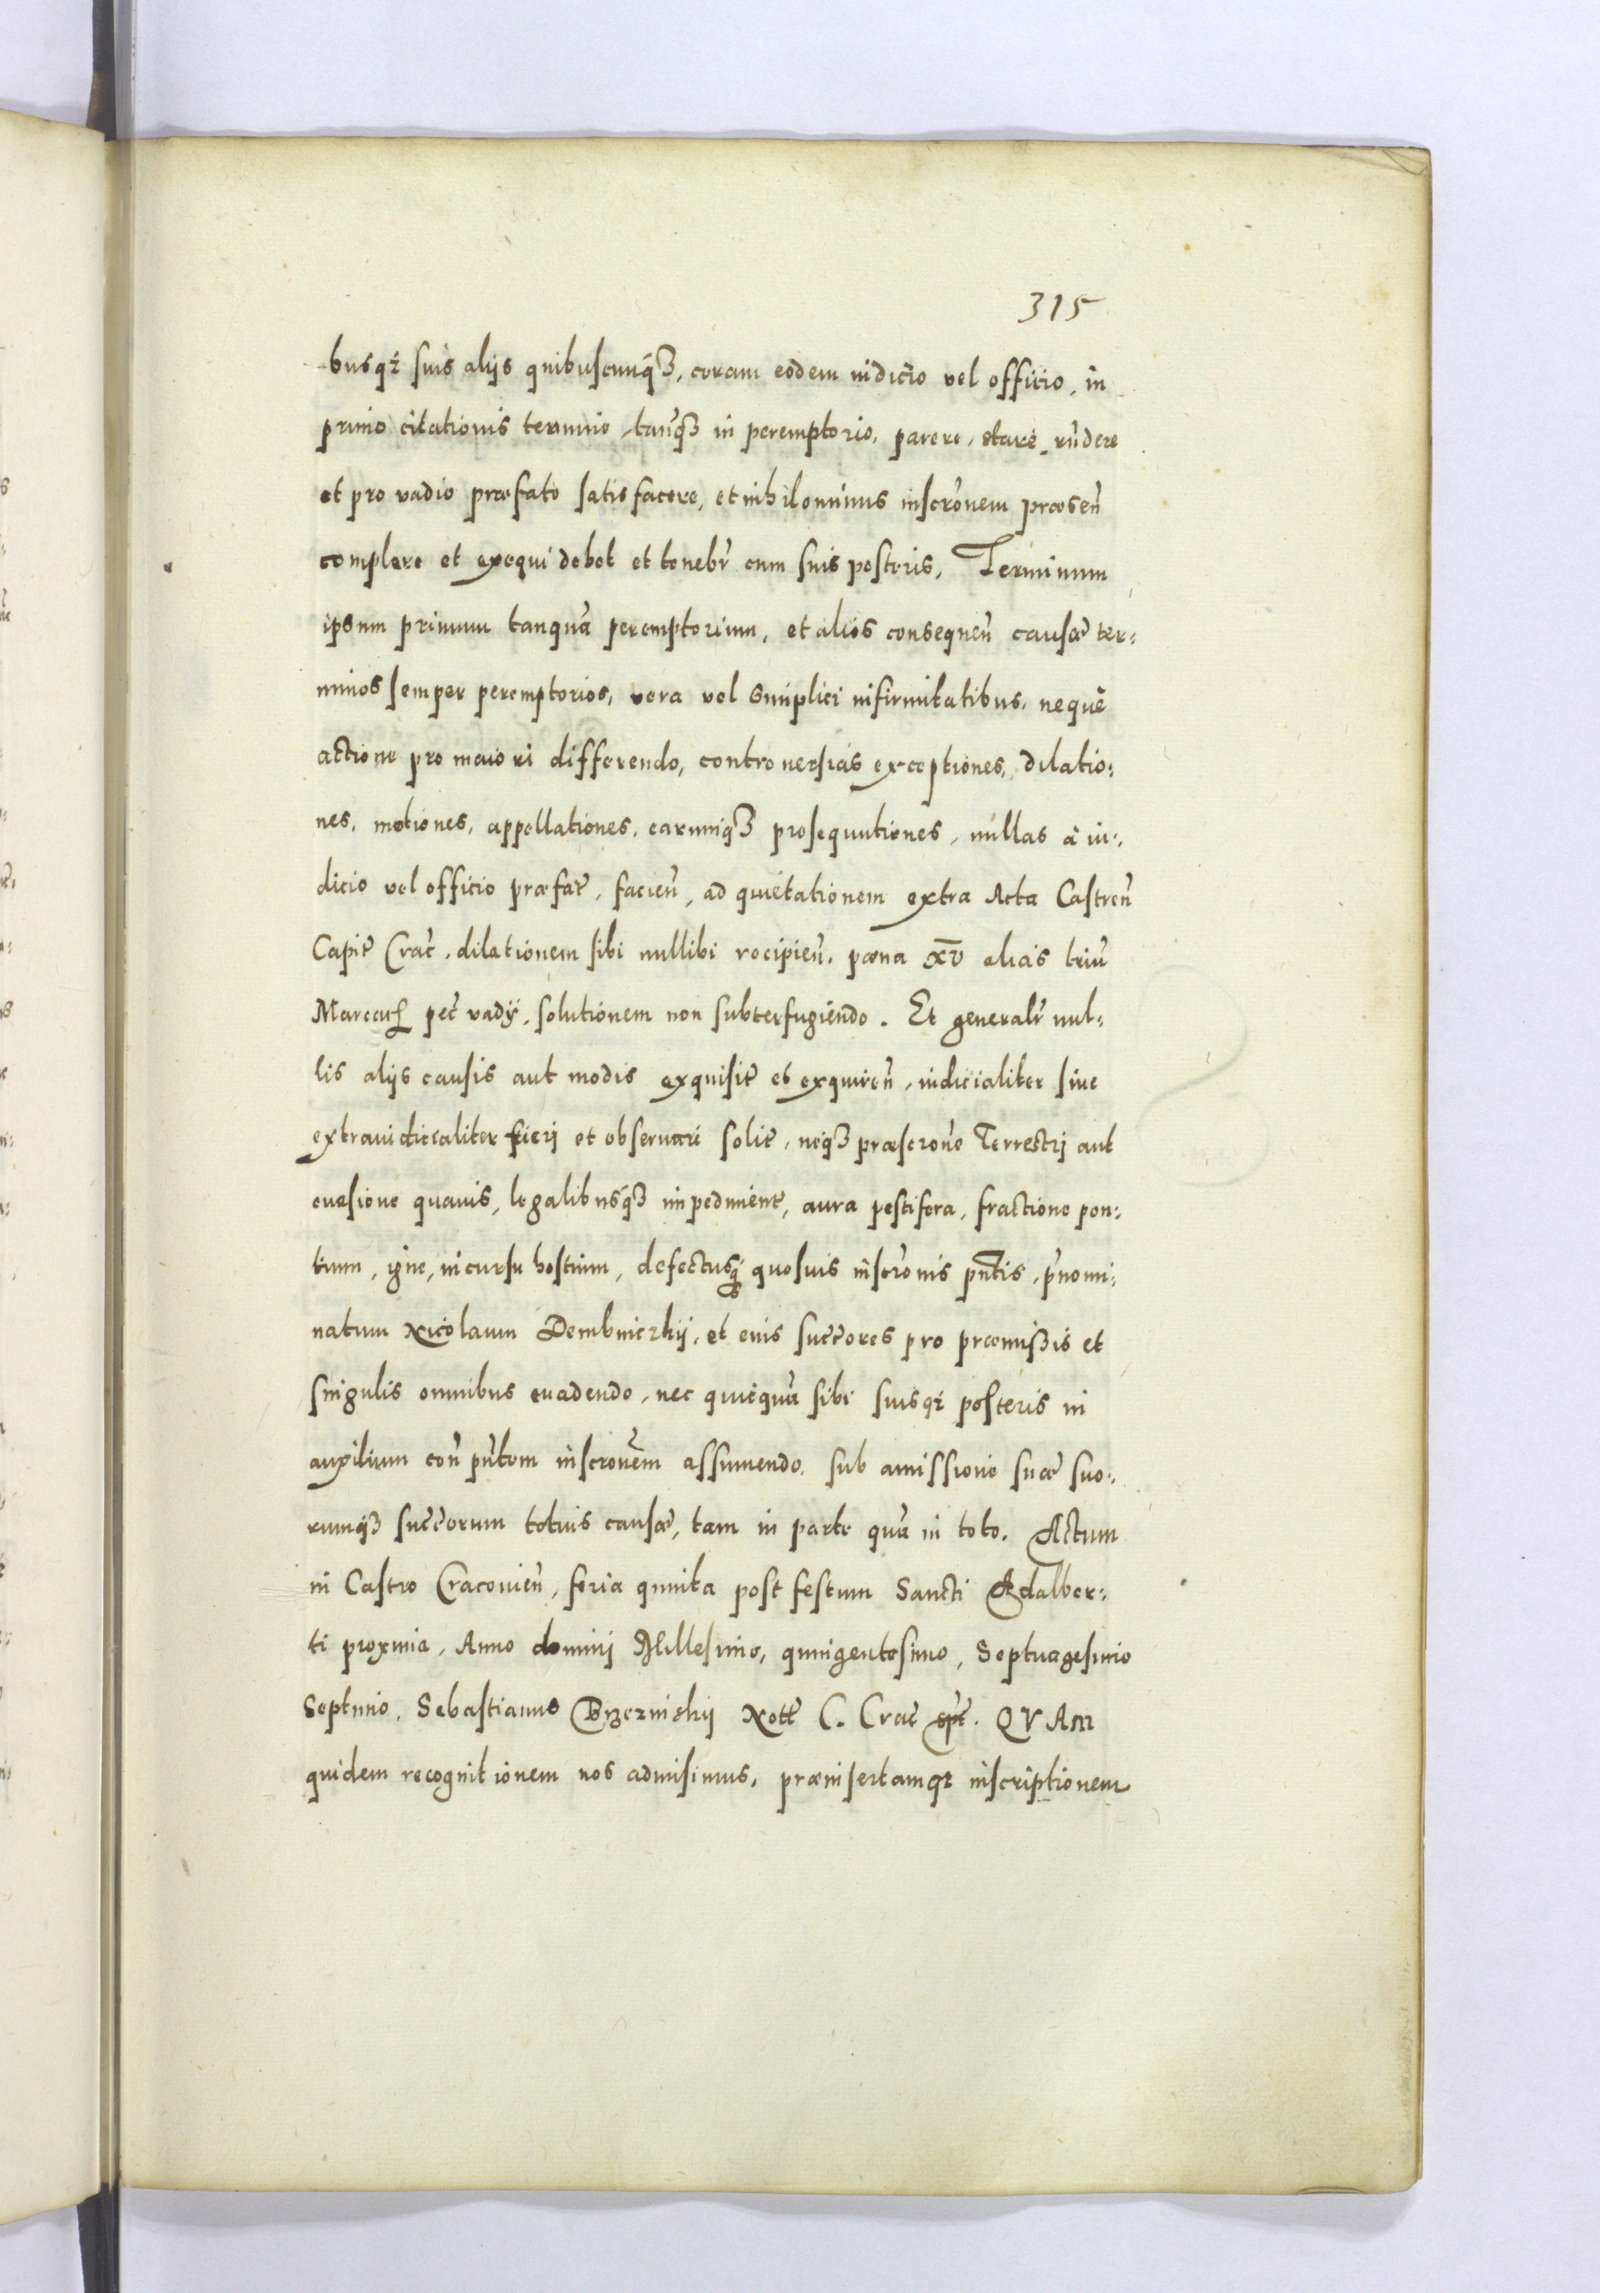 315
busq₃ suis alijs quibuscunq₃, coram eodem iudicio vel officio, in
primo citationis termino, tanq̃₃ in peremptorio, parere, stare, rñdere
et pro vadio præfato satisfacere, et nihilominus inscrõnem præsen̄
complere et exequi debet et tenebr̃ cum suis posteris, Terminum
ipsum primum tanquã peremptorium, et alios consequen̄ causæ ter:
minos semper peremptorios, vera vel simplici infirmitatibus, neque
actione pro maiori differendo, controuersias exceptiones, dilatio:
nes, motiones, appellationes, earumq₃ prosequutiones, nullas à iu:
dicio vel officio præfat̃, facien̄, ad quietationem extra Acta Castren̄
Capit̃ Crac̃, dilationem sibi nullibi recipien̄, pœna x̄v̄ alias triũ
Marcarȝ pec̃ vadij, solutionem non subterfugiendo. Et generalr̃ nul:
lis alijs causis aut modis exquisit̃ et exquiren̄, iudicialiter siue
extraiudicialiter fieri et obseruari solit̃, neq₃ præscrõne Terrestri aut
euasione quauis, legalibusq₃ impediment̃, aura pestifera, fractione pon:
tium, igne, incursu hostium, defectusq₃ quosuis inscrõnis pn̄tis, pr̃nomi:
natum Nicolaum Dembniczkij, et eius succ̃ores pro præmissis et
singulis omnibus euadendo, nec quicquã sibi suisq₃ posteris in
auxilium con̄ pn̄tem inscrõnem assumendo, sub amissione suæ suo:
rumq₃ succ̃orum totius causæ, tam in parte quã in toto. Actum
in Castro Cracouien̄, feria quinta post festum Sancti Adalber:
ti proxima, Anno domini Millesimo, quingentesimo, Septuagesimo
Septimo. Sebastianus Brzezinskij Nott̃ C. Crac̃ spt̃. QVAM
quidem recognitionem nos admisimus, præinsertamq₃ inscriptionem